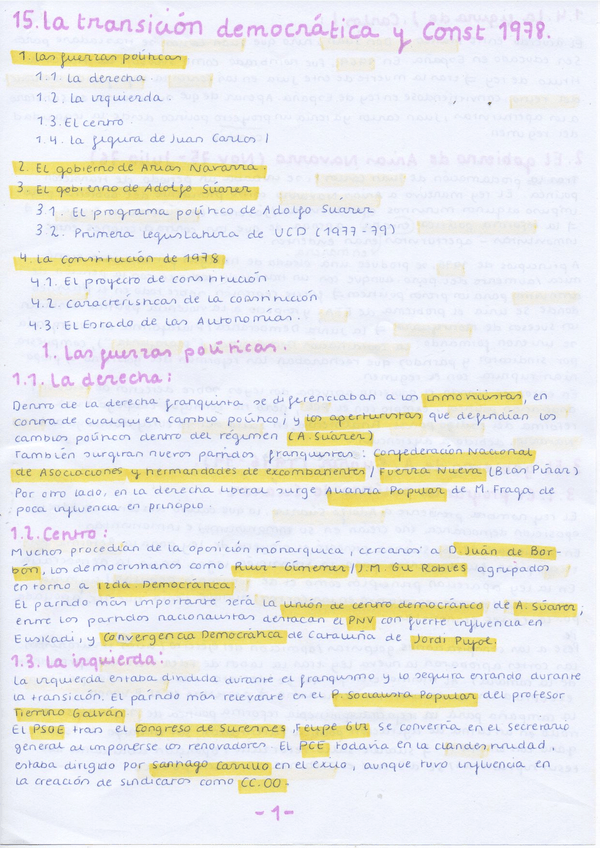 15. La transición democrática y Const 1978.
1. Las fuerzas políticas
1.1. La derecha
1.2. La izquierda
1.3. El centro
1.4. La figura de Juan Carlos I
2. El gobierno de Arias Navarro.
3. El gobierno de Adolfo Suárez
3.1. El programa político de Adolfo Suárez
3.2. Primera legislatura de UCD (1977-79)
4. La constitución de 1978
4.1. El proyecto de constitución
4.2. Características de la constitución
4.3. El Estado de las Autonomías.
1. Las fuerzas políticas.
1.1. La derecha:
Dentro de la derecha franquista se diferenciaban a los inmovilistas, en
contra de cualquier cambio político; y los aperturistas que defendían los
cambios políticos dentro del régimen (A. Suárez)
También surgirán nuevos partidos franquistas: Confederación Nacional
de Asociaciones y hermandades de excombatientes / Fuerza Nueva (Blas Piñar)
Por otro lado, en la derecha liberal surge Alianza Popular de M. Fraga de
poca influencia en principio.
1.2. Centro:
Muchos procedían de la oposición monárquica, cercanos a D. Juán de Bor-
bón, los democristianos como Ruiz-Gimenez / J.M. Gil Robles agrupados
en torno a Izda. Democrática
El partido más importante será la unión de centro democrático de A. Súarez;
entre los partidos nacionalistas destacan el PNV con fuerte influencia en
Euskadi, y Convergencia Democrática de Cataluña de Jordi Pujol.
1.3. La izquierda:
La izquierda estaba dividida durante el franquismo y lo seguirá estando durante
la transición. El partido más relevante en el P. Socialista Popular del profesor
Tierno Galván
El PSOE tras el Congreso de Surennes, Felipe Glz se convertía en el secretario
general al imponerse los renovadores. El PCE todavía en la clandestinidad,
estaba dirigido por Santiago Carrillo en el exilio, aunque tuvo influencia en
la creación de sindicatos como CC.OO.
-1-